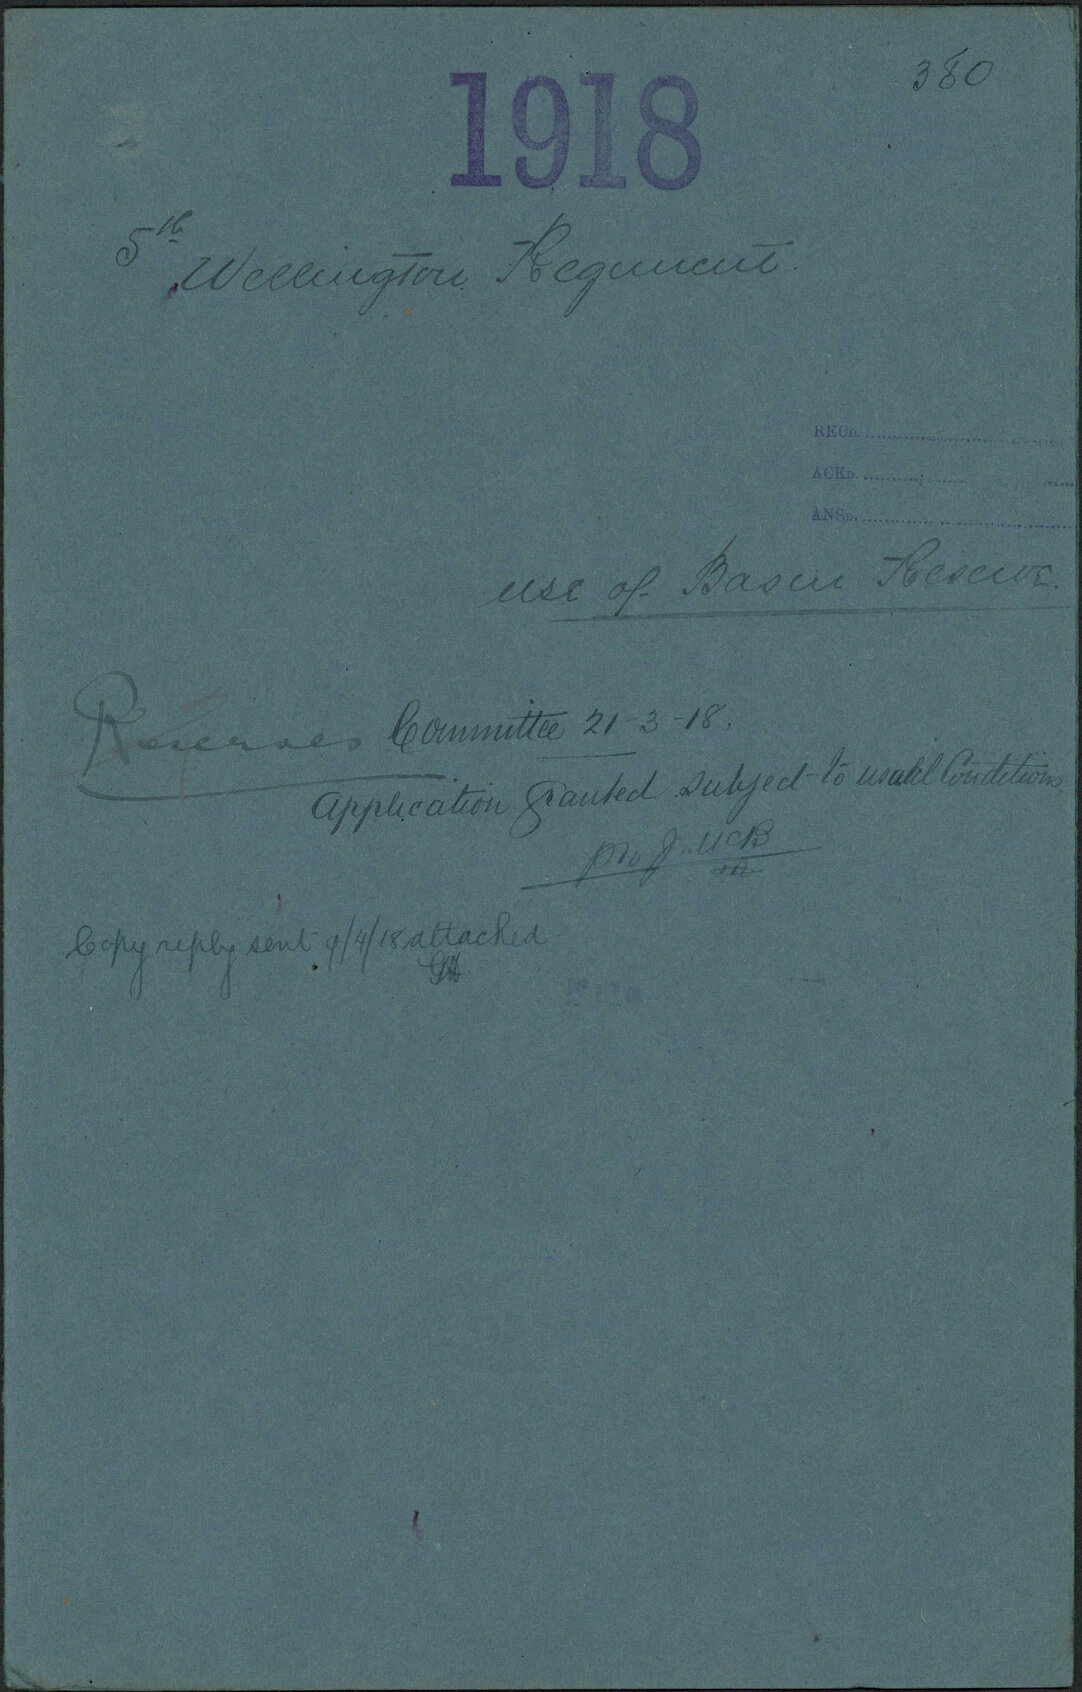 380
1918
5th Wellington Regiment.
RECD.
ACKD.
ANSD.
use of Basin Reserve.
Reserves Committee 21-3-18.
Application granted subject to usual Conditions,
pro J. McB
Copy reply sent 9/4/18 attached
File